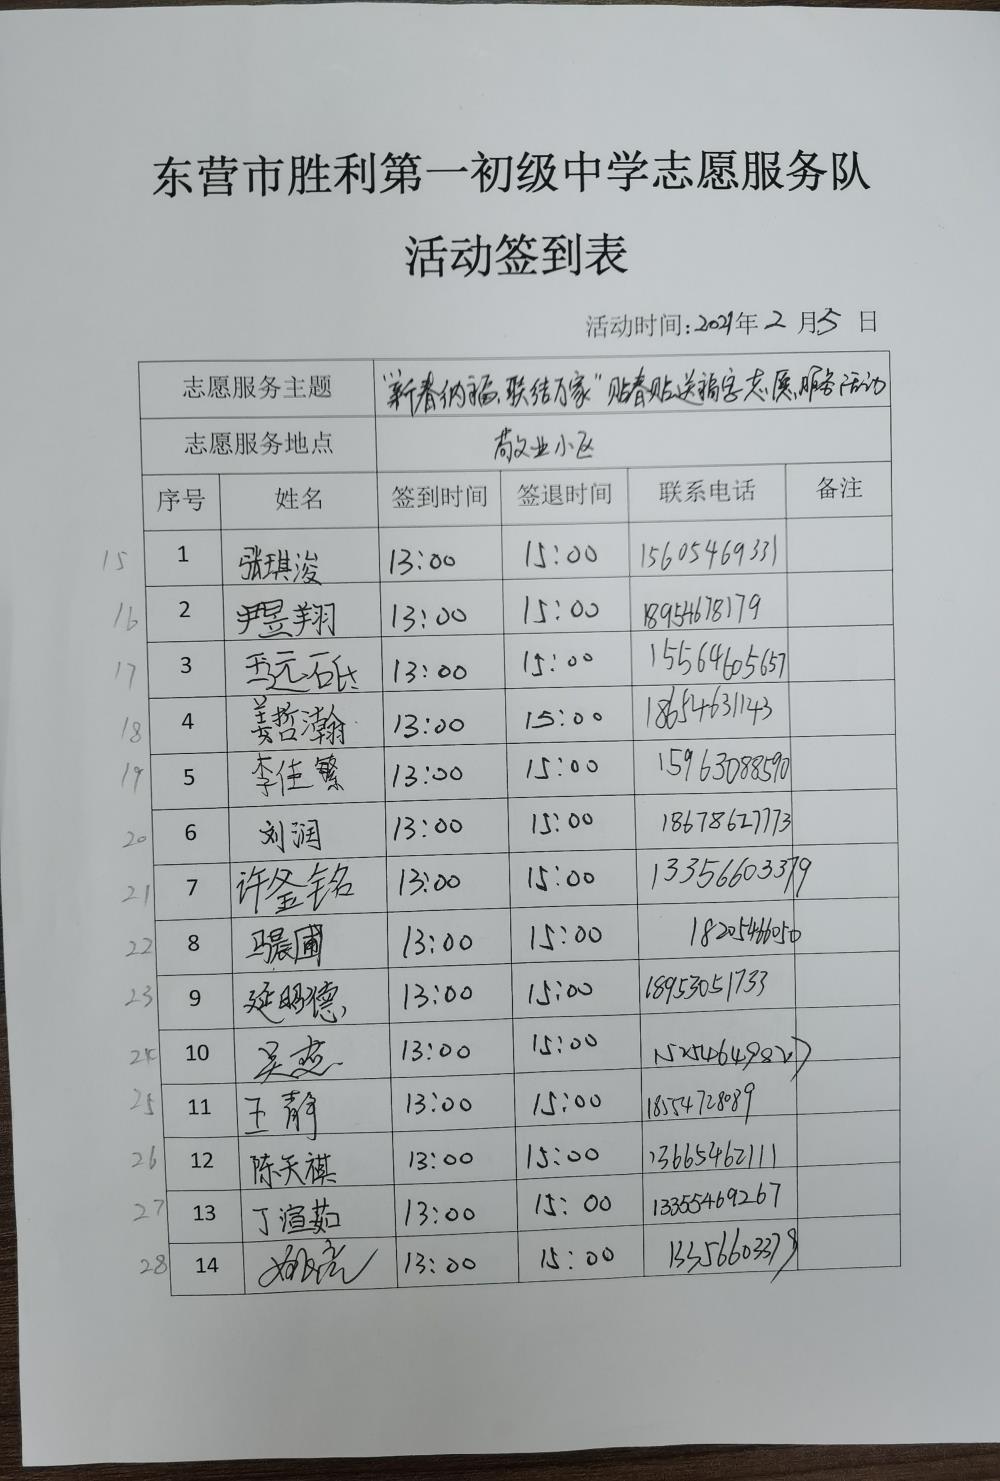 东营市胜利第一初级中学志愿服务队
活动签到表
活动时间:2021年2月5日
志愿服务主题 “新春纳福,联结万家”贴春贴送福字志愿服务活动
志愿服务地点 敬业小区
序号 姓名 签到时间 签退时间 联系电话 备注
15 1 张琪浚 13:00 15:00 15605469331
16 2 尹昱翔 13:00 15:00 18954678179
17 3 13:00 15:00 15564605657
18 4 姜哲瀚 13:00 15:00 18654631143
19 5 李佳繁 13:00 15:00 15963088590
20 6 刘润 13:00 15:00 18678627773
21 7 许釜铭 13:00 15:00 13356603379
22 8 马晨圃 13:00 15:00 18205466050
23 9 延明德 13:00 15:00 18953051733
24 10 吴燕 13:00 15:00
25 11 王静 13:00 15:00 18554728089
26 12 陈天祺 13:00 15:00 13665462111
27 13 丁渲茹 13:00 15:00 13355469267
28 14 13:00 15:00 13356603379